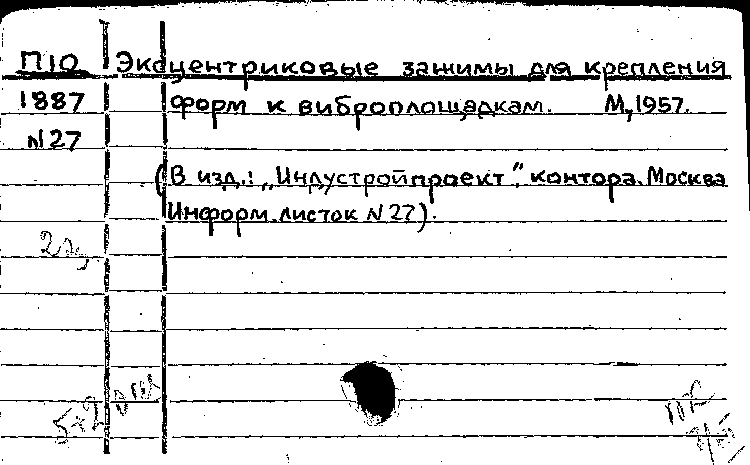 П10 Эксцентриковые зажимы для крепления
1887 форм к виброплощадкам. М, 1957.
N27
(В изд.: „Индустройпроект", контора. Москва
Информ. листок N 27).
2 эк